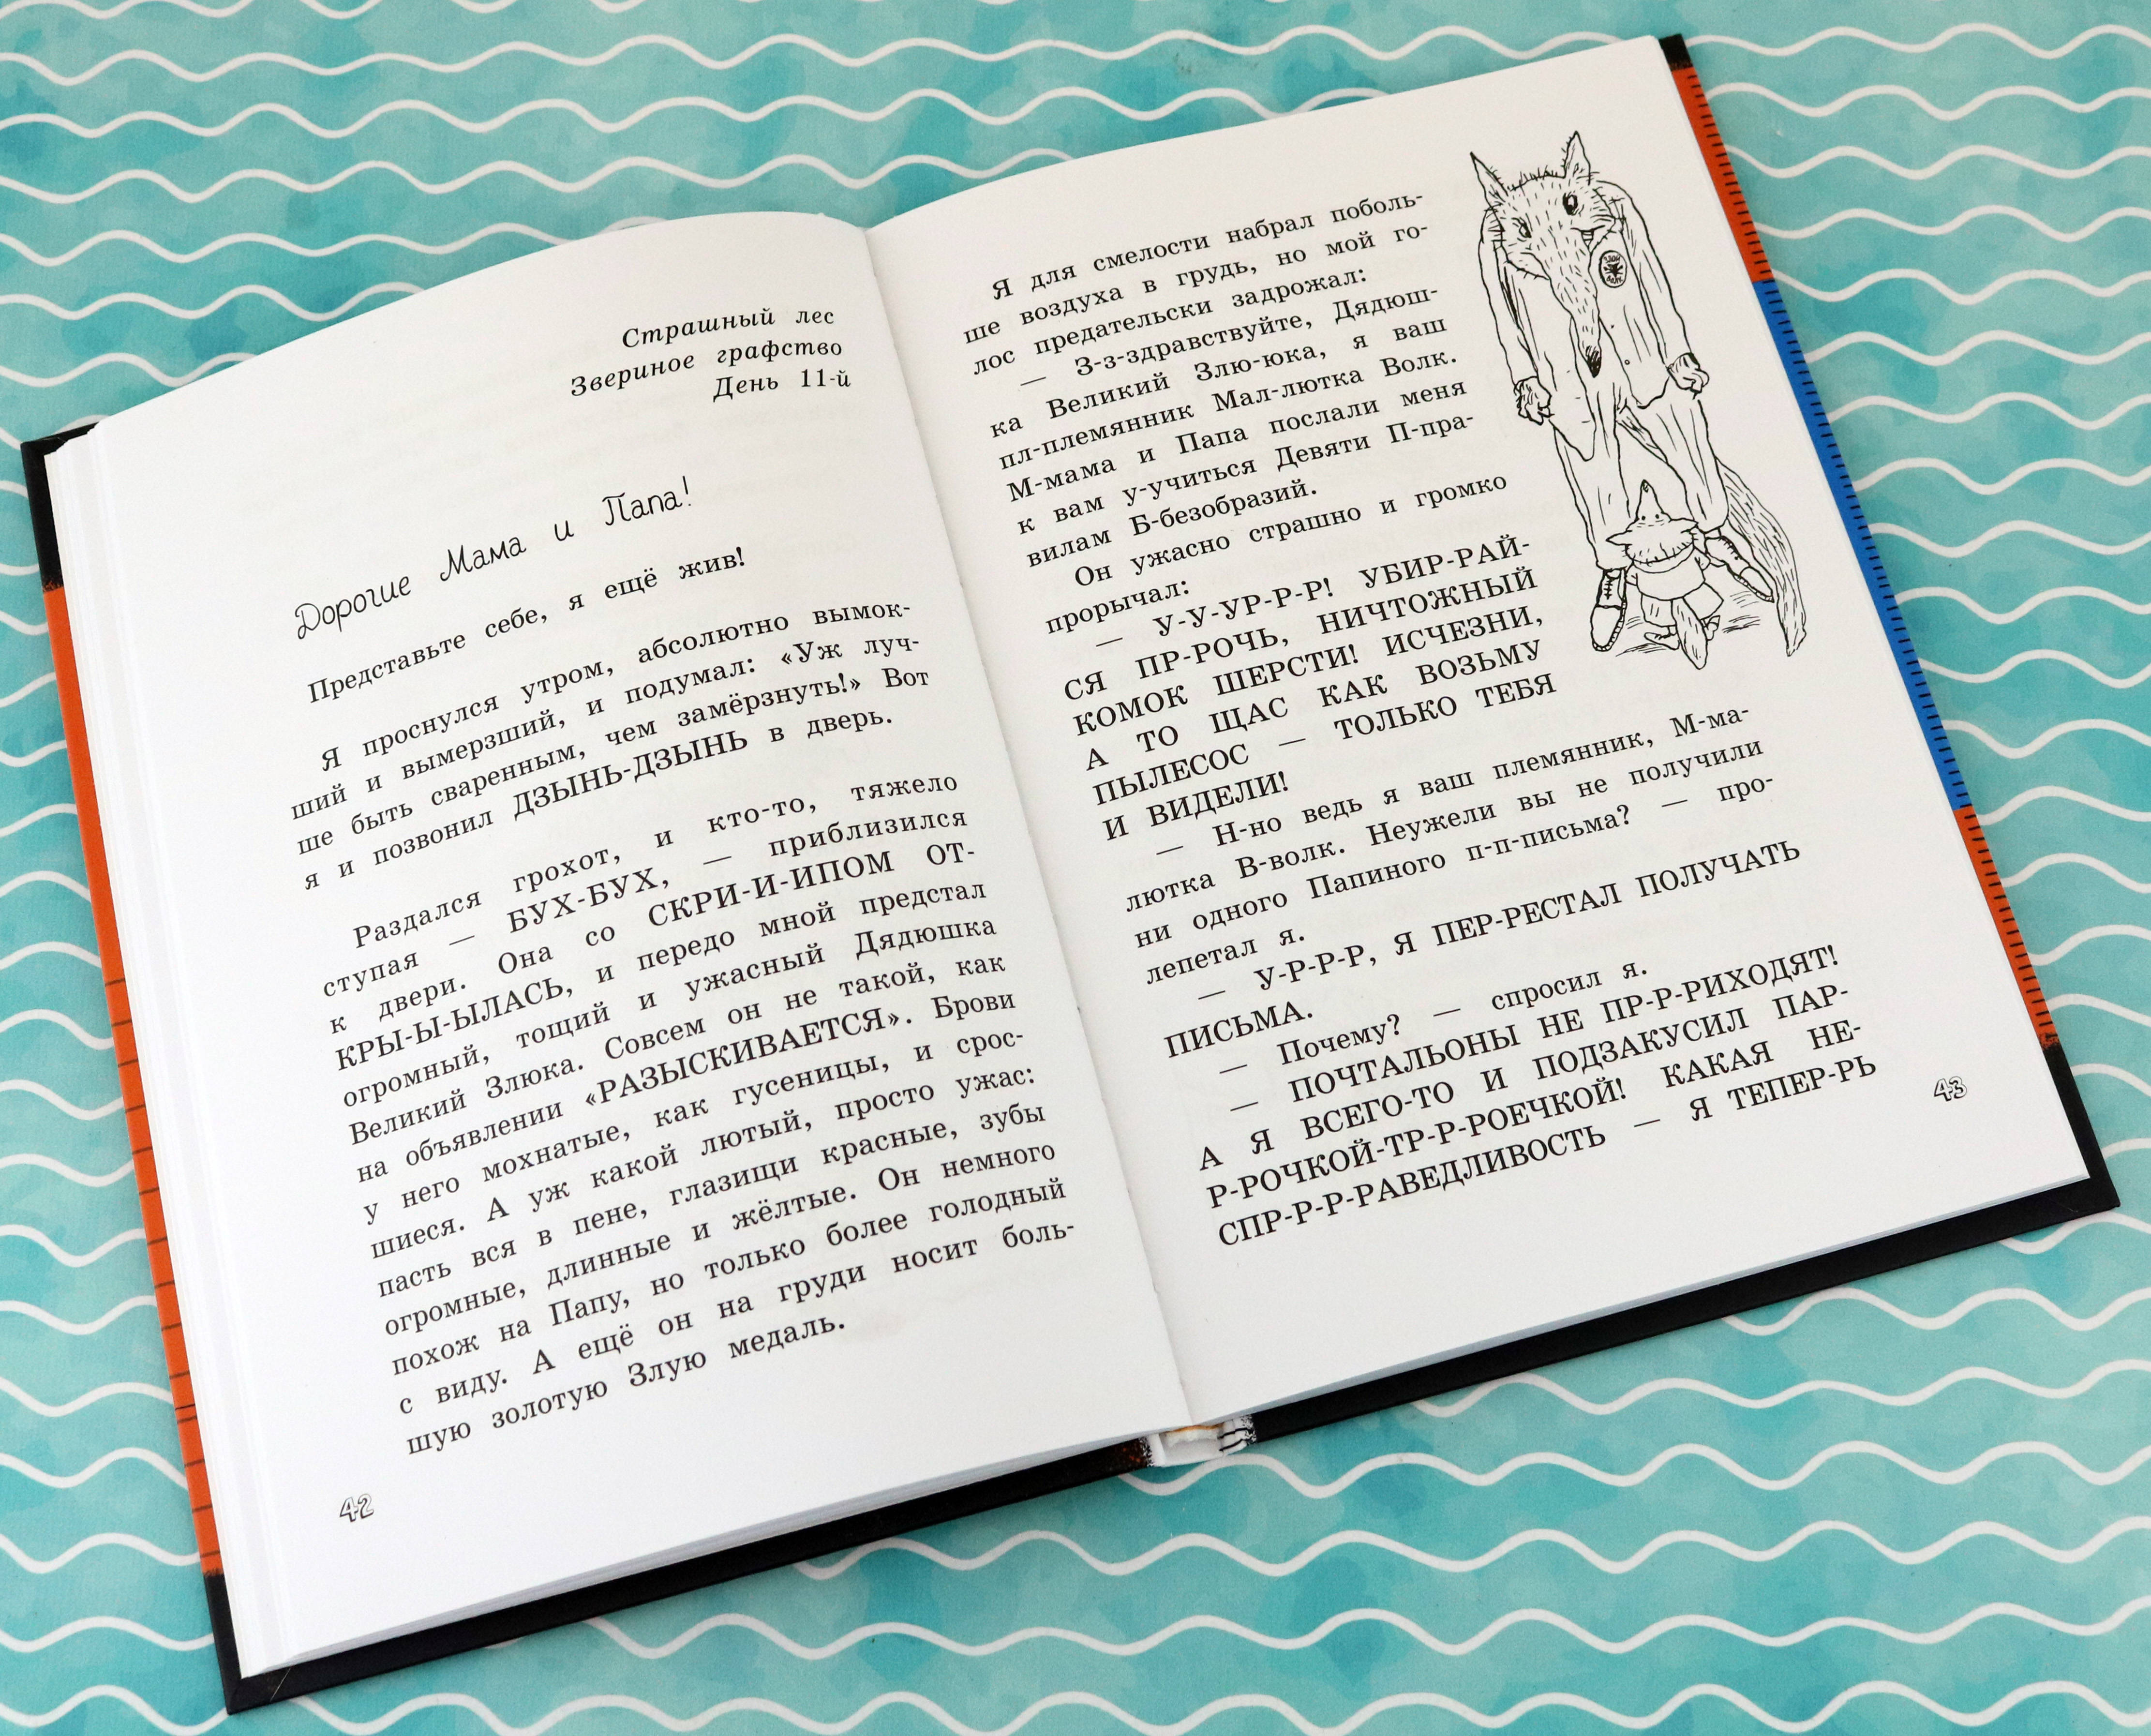 Страшный лес
Звериное графство
День 11-й
Дорогие Мама и Папа!
Представьте себе, я ещё жив!
Я проснулся утром, абсолютно вымок-
ший и вымерзший, и подумал: «Уж луч-
ше быть сваренным, чем замёрзнуть!» Вот
я и позвонил ДЗЫНЬ-ДЗЫНЬ в дверь.
Раздался грохот, и кто-то, тяжело
ступая — БУХ-БУХ, — приблизился
к двери. Она со СКРИ-И-ИПОМ ОТ-
КРЫ-Ы-ЫЛАСЬ, и передо мной предстал
огромный, тощий и ужасный Дядюшка
Великий Злюка. Совсем он не такой, как
на объявлении «РАЗЫСКИВАЕТСЯ». Брови
у него мохнатые, как гусеницы, и срос-
шиеся. А уж какой лютый, просто ужас:
пасть вся в пене, глазищи красные, зубы
огромные, длинные и жёлтые. Он немного
похож на Папу, но только более голодный
с виду. А ещё он на груди носит боль-
шую золотую Злую медаль.
42
Я для смелости набрал поболь-
ше воздуха в грудь, но мой го-
лос предательски задрожал:
— З-з-здравствуйте, Дядюш-
ка Великий Злю-юка, я ваш
пл-племянник Мал-лютка Волк.
М-мама и Папа послали меня
к вам у-учиться Девяти П-пра-
вилам Б-безобразий.
Он ужасно страшно и громко
прорычал:
— У-У-УР-Р-Р! УБИР-РАЙ-
СЯ ПР-РОЧЬ, НИЧТОЖНЫЙ
КОМОК ШЕРСТИ! ИСЧЕЗНИ,
А ТО ЩАС КАК ВОЗЬМУ
ПЫЛЕСОС — ТОЛЬКО ТЕБЯ
И ВИДЕЛИ!
— Н-но ведь я ваш племянник, М-ма-
лютка В-волк. Неужели вы не получили
ни одного Папиного п-п-письма? — про-
лепетал я.
— У-Р-Р-Р, Я ПЕР-РЕСТАЛ ПОЛУЧАТЬ
ПИСЬМА.
— Почему? — спросил я.
— ПОЧТАЛЬОНЫ НЕ ПР-Р-РИХОДЯТ!
А Я ВСЕГО-ТО И ПОДЗАКУСИЛ ПАР-
Р-РОЧКОЙ-ТР-Р-РОЕЧКОЙ! КАКАЯ НЕ-
СПР-Р-Р-РАВЕДЛИВОСТЬ — Я ТЕПЕР-РЬ
43